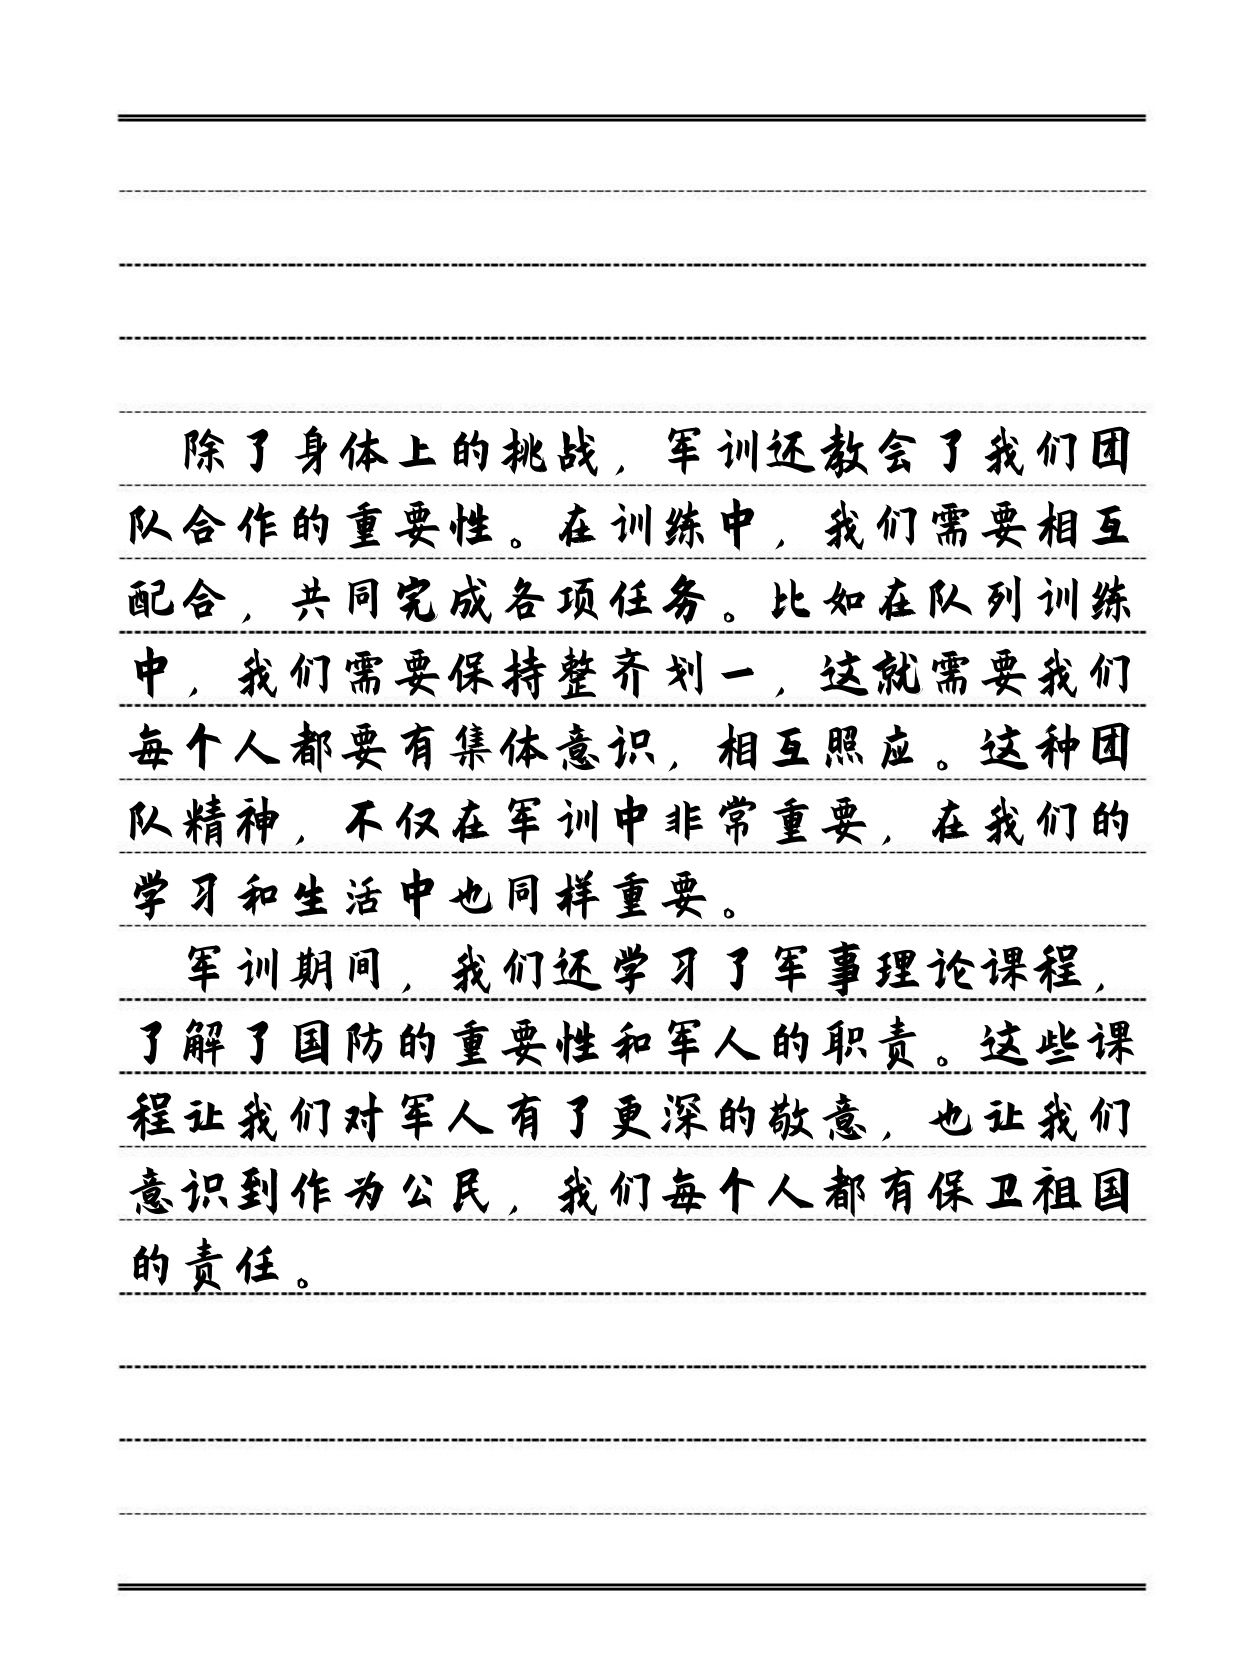 除了身体上的挑战，军训还教会了我们团
队合作的重要性。在训练中，我们需要相互
配合，共同完成各项任务。比如在队列训练
中，我们需要保持整齐划一，这就需要我们
每个人都要有集体意识，相互照应。这种团
队精神，不仅在军训中非常重要，在我们的
学习和生活中也同样重要。
军训期间，我们还学习了军事理论课程，
了解了国防的重要性和军人的职责。这些课
程让我们对军人有了更深的敬意，也让我们
意识到作为公民，我们每个人都有保卫祖国
的责任。